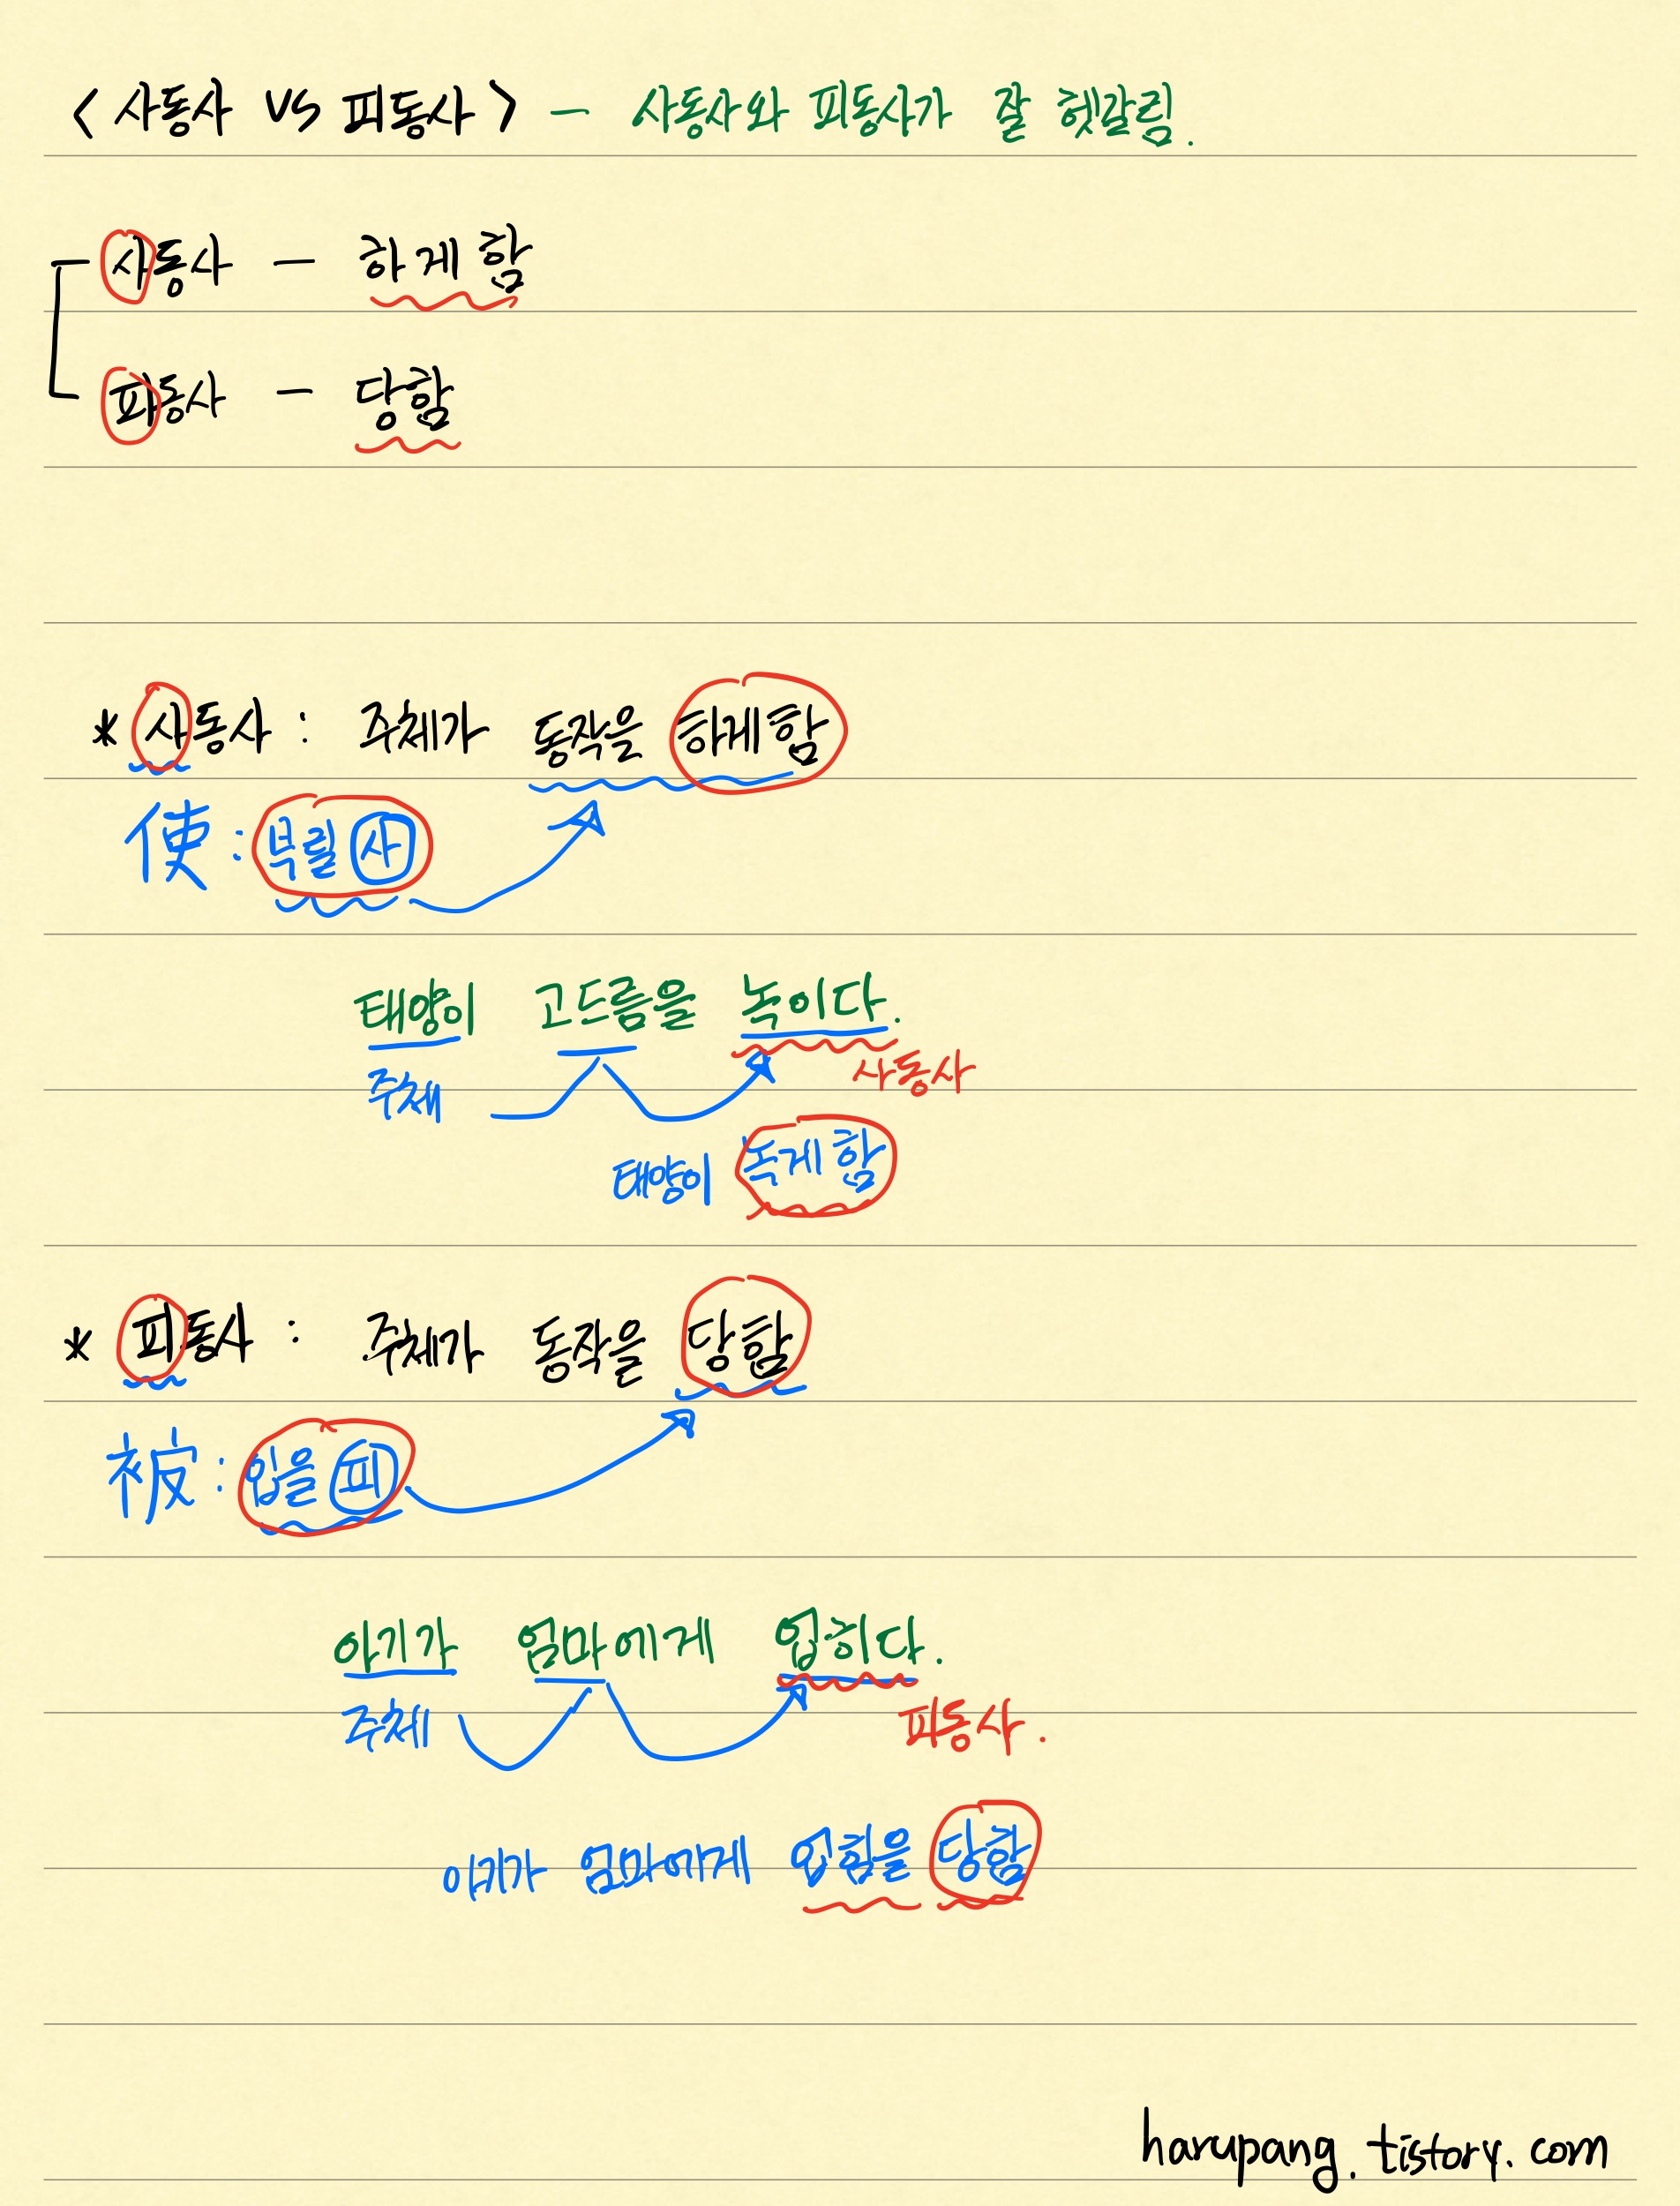 < 사동사 VS 피동사 > - 사동사와 피동사가 잘 헷갈림.
사동사 - 하게 함
피동사 - 당함
* 사동사 : 주체가 동작을 하게 함
使 : 부릴 사
태양이 고드름을 녹이다.
주체 사동사
태양이 녹게 함
* 피동사 : 주체가 동작을 당함
被 : 입을 피
아기가 엄마에게 업히다.
주체 피동사.
아기가 엄마에게 업힘을 당함
harupang.tistory.com